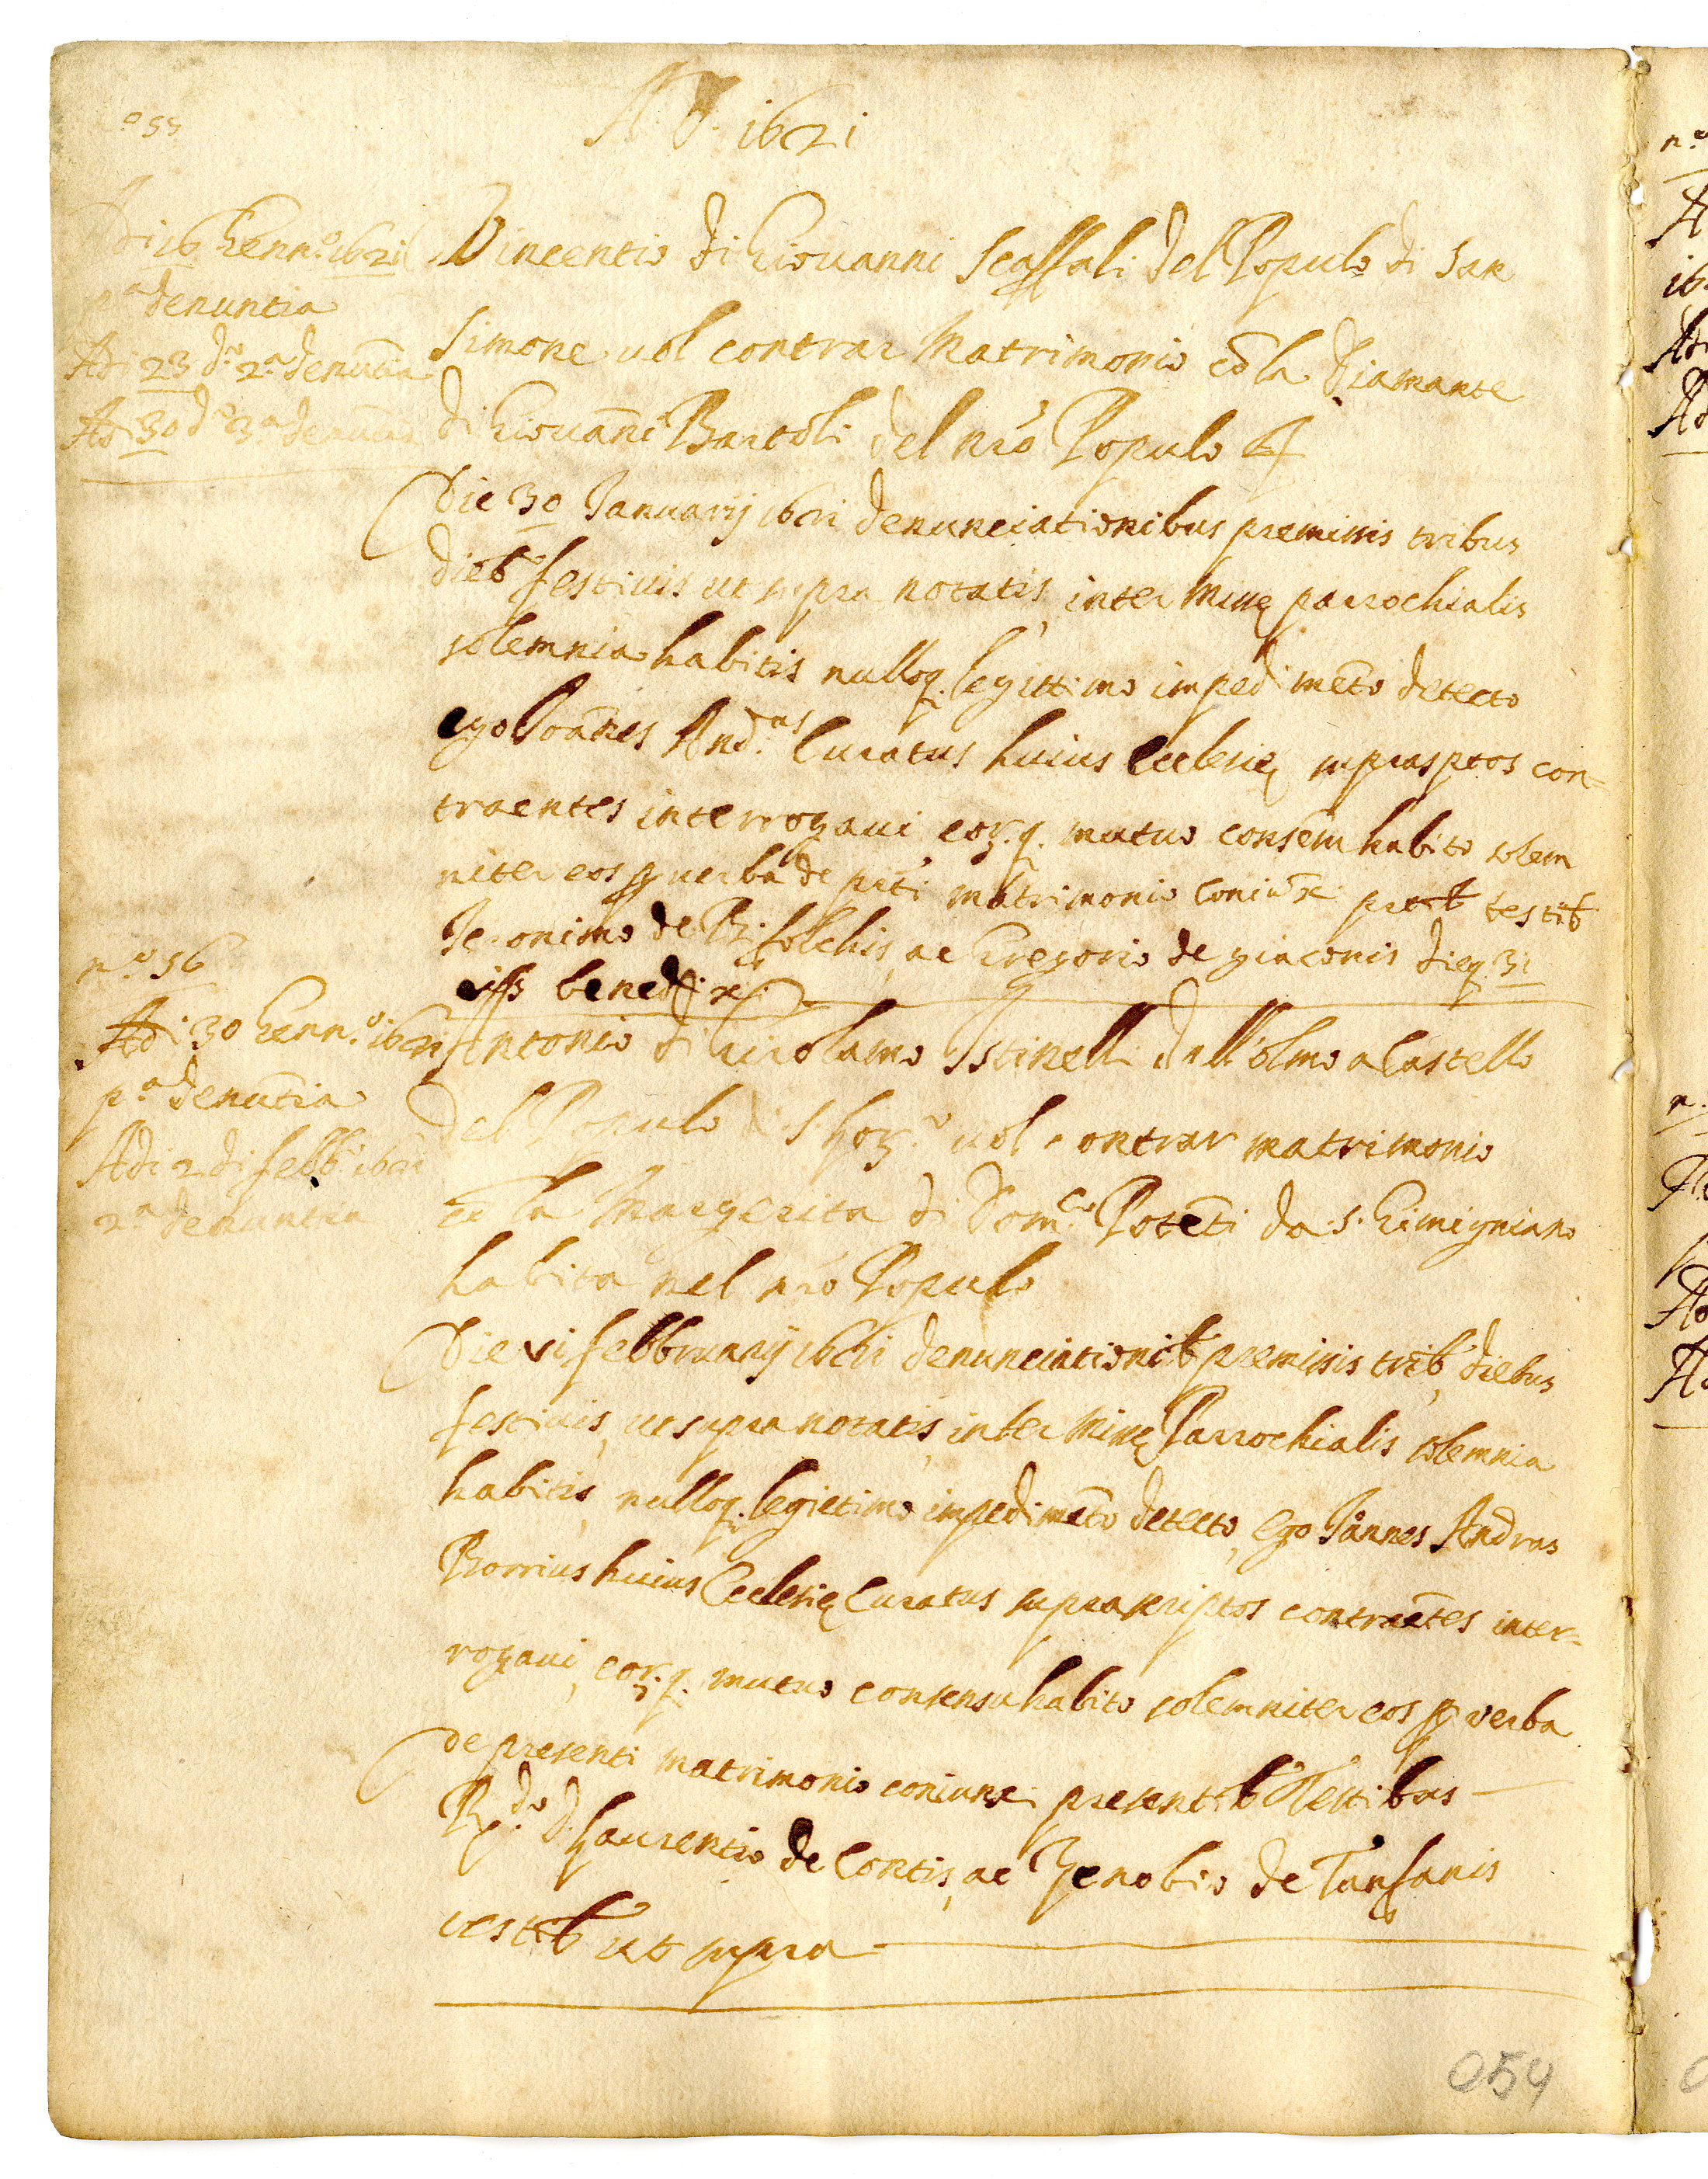 n.º 55
A. D. 1621
Adi 16 Genn.º 1621
p.ª denuntia
Adi 23 d.º 2.ª denūtia
Adi 30 dº 3.ª denūtia
Vincentio di Giouanni Scaffali del Populo di San
Simone uol contrar Matrimonio cō la Diamante
di Giouāni Bartoli del nr̄o Populo
Die 30 Januarij 1621 denunciationibus premissis tribus
dieb. festiuis ut supra notatis, inter Missę parrochialis
solemnia habitis nulloq. legittimo impedimēto detecto
ego Joānes And.as Curatus huius Ecclesię suprasptos con=
traentes interrogaui eor.q. mutuo consensu habito solem
niter eos ꝑ uerba de pn̄ti matrimonio coniūxi pn̄tib testib
Jeronimo de Bifolchis, ac Gregorio de giaconis dieq. 31
eiss benedixi
n.º 56
Adi 30 Genn.º 1621
p.ª denūtia
Adi 2 di febb.º 1621
2.ª denuntia
Antonio di Girolamo Stinelli dall'olmo a Castello
del Populo di S. uol contrar matrimonio
cō la Margerita di Dom.co Potēti da S. Gimigniano
habita nel nr̄o Populo
Die vi febbruarij 1621 denunciationib. premissis trib. diebus
festiuis, ut supra notatis, inter Missę Parrochialis solemnia
habitis, nulloq. legietimo impedimēto detecto, Ego Joānnes Andreas
Borrius huius Ecclesię Curatus suprascriptos contraētes inter=
rogaui, eor.q. mutuo consensu habito solemniter eos ꝑ verba
de presenti matrimonio coniunxi presentib. Testibus
R.do D. Laurentio de Contis, ac Zenobio de Tanfanis
testib. ut supra
054